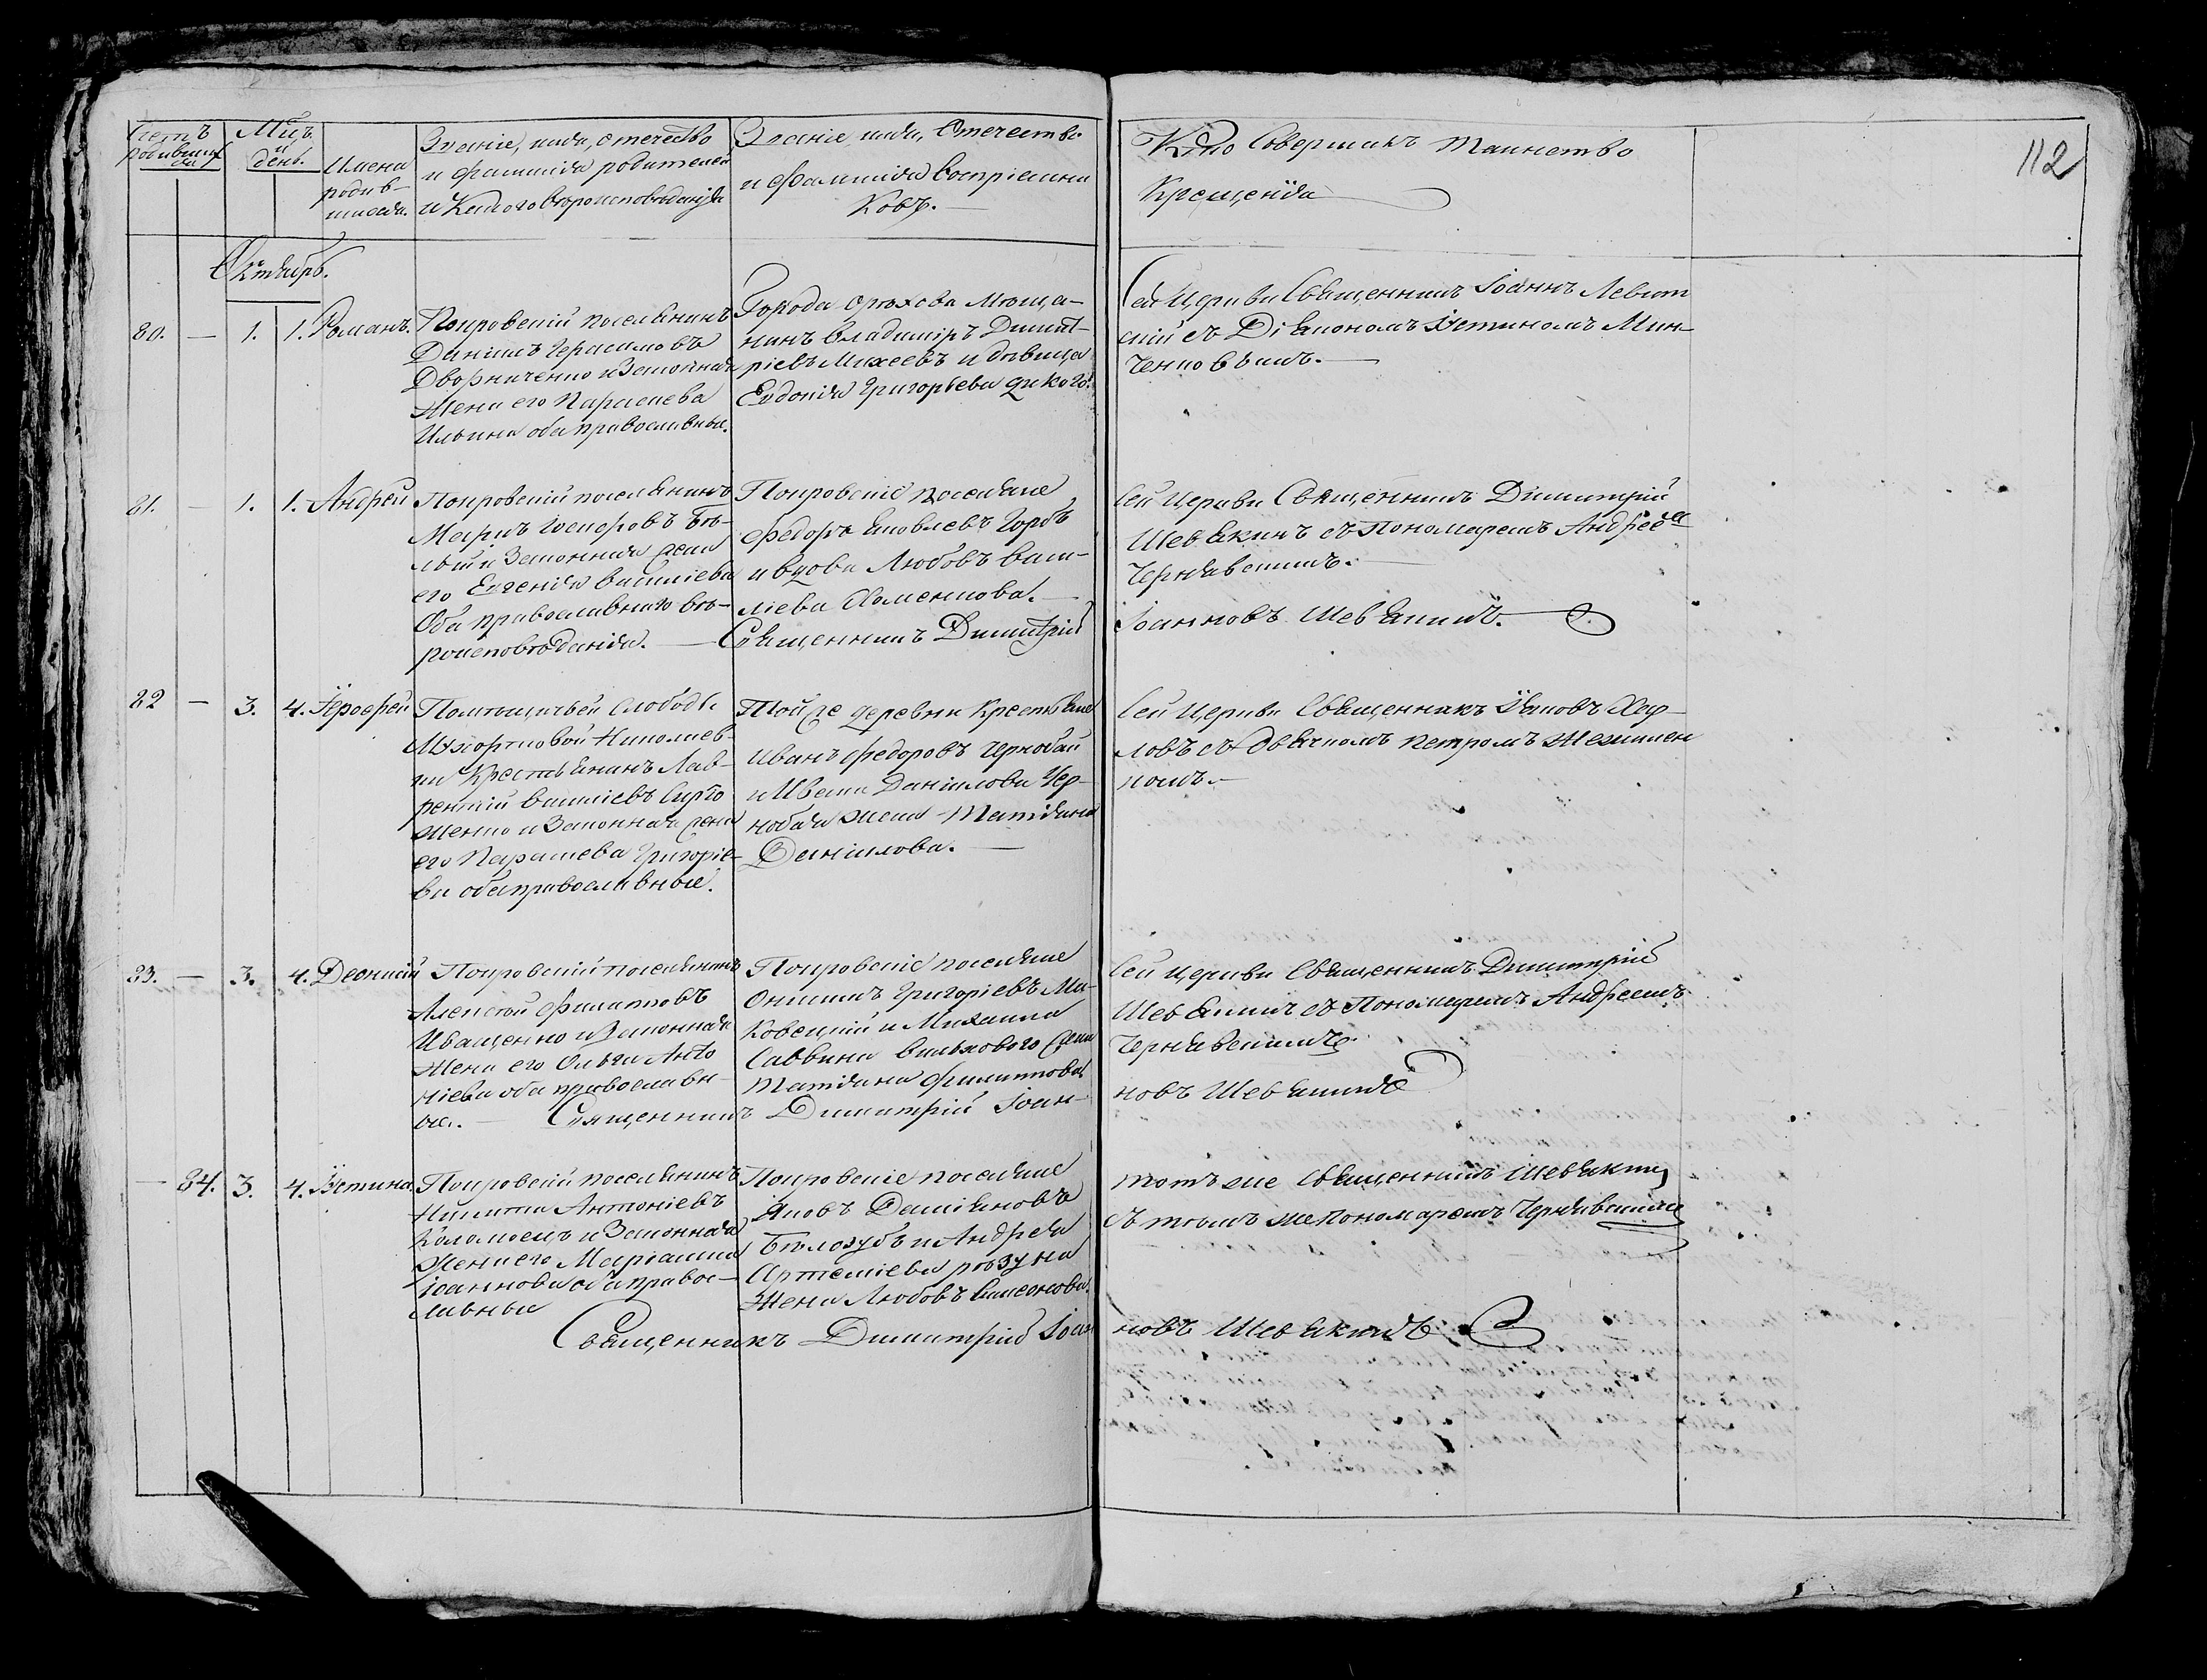 Счетъ родившихся
Мц̃ъ и день.
Имена родившихся.
Званіе, имя, отечество
и фамилія родителей
и какого вѣроисповѣданія
Званіе, имя, Отечество
и фамилія воспріемни
ковъ.
Кто совершалъ таинство
Крещенія
112
Октябрь.
80. — 1. 1. Романъ.
Покровскій поселянинъ
Даніилъ Герасимовъ
Дворниченко и Законная
Жена его Параскева
Ильина оба православные.
Города Орѣхова Мѣща-
нинъ Владиміръ Димит-
ріевъ Михеевъ и дѣвица
Евдокія Григорьева
Сей Церкви Священникъ Іоаннъ Левит
скій съ Діакономъ Іустиномъ Мин-
ченковымъ.
81. — 1. 1. Андрей
Покровскій поселянинъ
Маркъ Іосифовъ Бѣ-
лый и Законная Жена
его Евгенія Василіева
Оба православнаго вѣ-
роисповѣданія.
Покровскіе поселяне
Федоръ Яковлевъ Горбъ
и вдова Любовъ Васи-
ліева Хоменкова.
Священникъ Димитрій
Сей Церкви Священникъ Димитрій
Шевякинъ съ Пономаремъ Андреемъ
Чернявскимъ.
Іоанновъ Шевякинъ.
82 — 3. 4. Іерофей
Помѣщичьей Слободы
Николаев-
ки Крестьянинъ Лав-
рентій Василіевъ
и Законная жена
его Параскева Григоріе-
ва оба православные.
Той же деревни Крестьяне
Иванъ Федоровъ Чернобай
и Ивана Даніилова Чер-
нобая жена Татіяна
Даніилова.
Сей Церкви Священникъ Іаковъ
ловъ съ Дьячкомъ Петромъ
комъ.
83. — 3. 4. Деонисій
Покровскій поселянинъ
Алексѣй Филиповъ
Иващенко и Законная
Жена его Ольга Анто
ніева оба православн-
ые. — Священникъ Димитрій Іоан-
Покровскіе поселяне
Онисимъ Григоріевъ Ма-
ковецкій и Михаила
Саввина жена
Татіяна Филиппова
Сей Церкви Священникъ Димитрій
Шевякинъ съ Пономаремъ Андреемъ
Чернявскимъ.
новъ Шевякинъ
— 84. 3. 4. Іустина.
Покровскій поселянинъ
Никита Антоніевъ
Коломоецъ и Законная
Жена его Маріамна
Іоаннова оба правос-
лавные
Покровскіе поселяне
Яковъ Даміяновъ
Бѣлозубъ и Андрея
Артеміева
Жена Любовъ
Тотъ же Священникъ Шевякинъ
съ тѣмъ же Пономаремъ Чернявскимъ
Священникъ Димитрій Іоан
новъ Шевякинъ